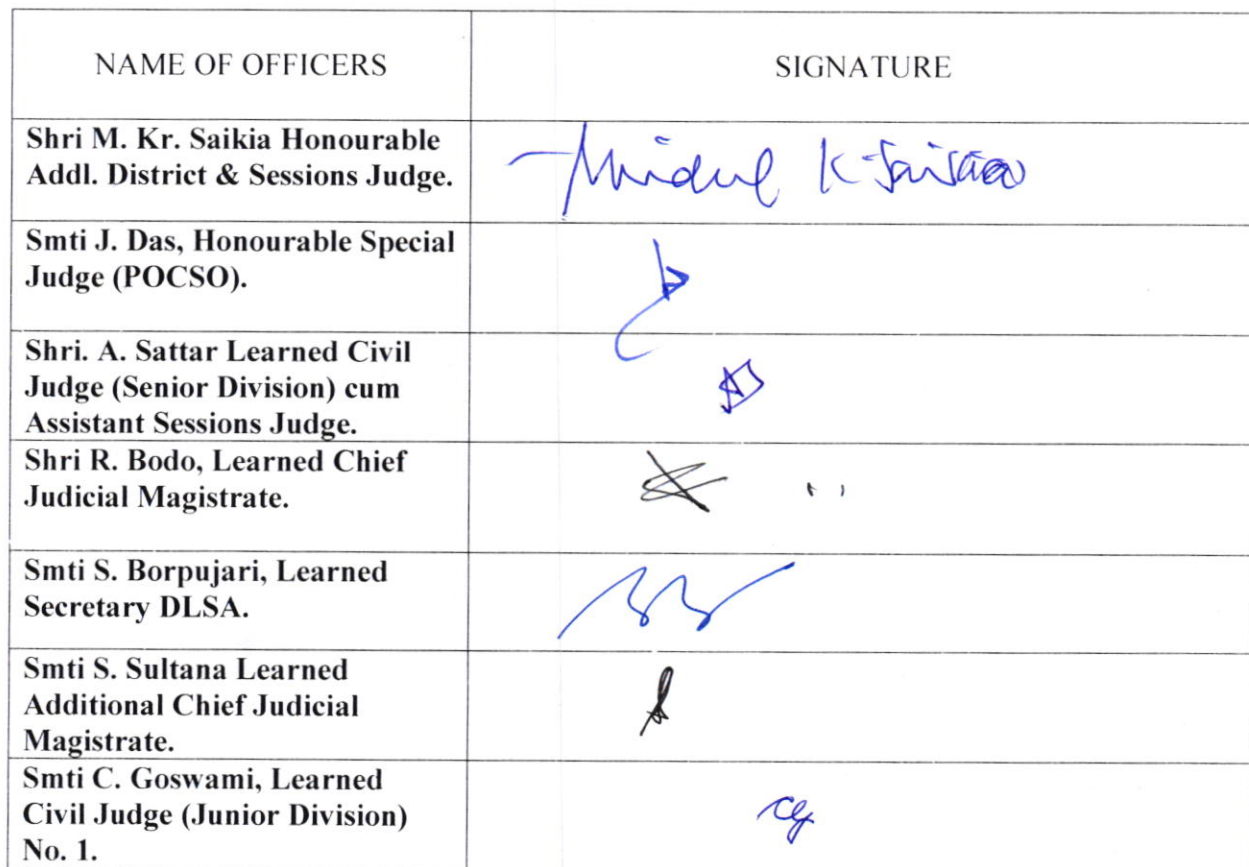 NAME OF OFFICERS
SIGNATURE
Shri M. Kr. Saikia Honourable
Addl. District & Sessions Judge.
Mridul K Saikia
Smti J. Das, Honourable Special
Judge (POCSO).
Shri. A. Sattar Learned Civil
Judge (Senior Division) cum
Assistant Sessions Judge.
Shri R. Bodo, Learned Chief
Judicial Magistrate.
Smti S. Borpujari, Learned
Secretary DLSA.
Smti S. Sultana Learned
Additional Chief Judicial
Magistrate.
Smti C. Goswami, Learned
Civil Judge (Junior Division)
No. 1.